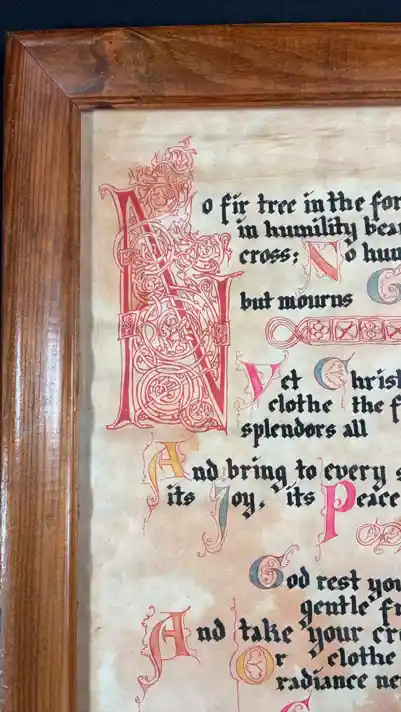 No fir tree in the for
in humility bear
cross; No hum
but mourns G
Yet Christ
clothe the f
splendors all
And bring to every s
its Joy, its Peace
God rest you
gentle fr
And take your cr
Or clothe
radiance ne